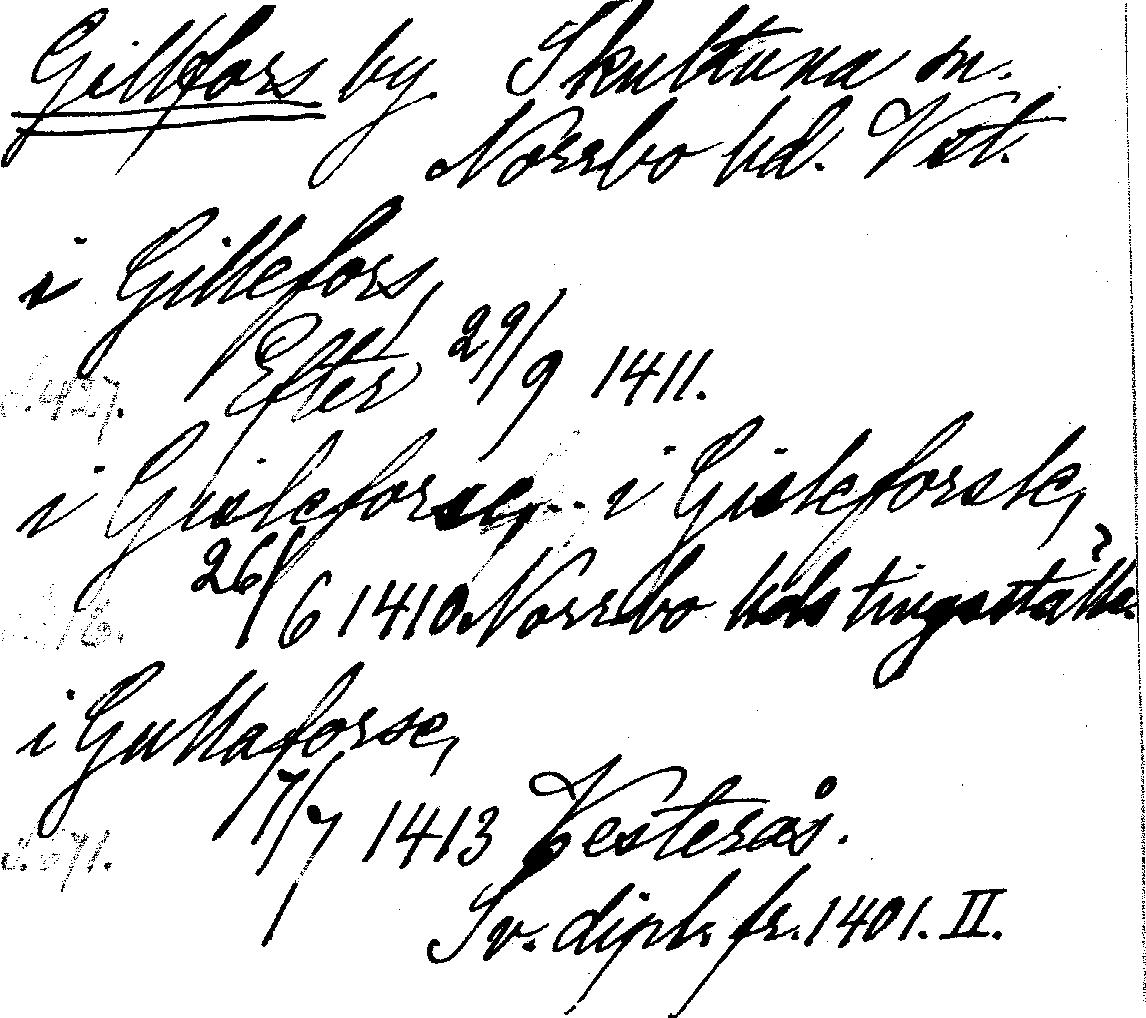 Gillfors by Skultuna sn.
Norrbo hd. Vstl.
i Gillefors,
Efter 29/9 1411.
s. 427.
i Gisleforse, i Gisleforsle,
26/6 1410 Norrbo hds tingsställe.
i Gullaforse,
17/7 1413 Vesterås.
s. 671.
Sv. dipl. fr. 1401. II.